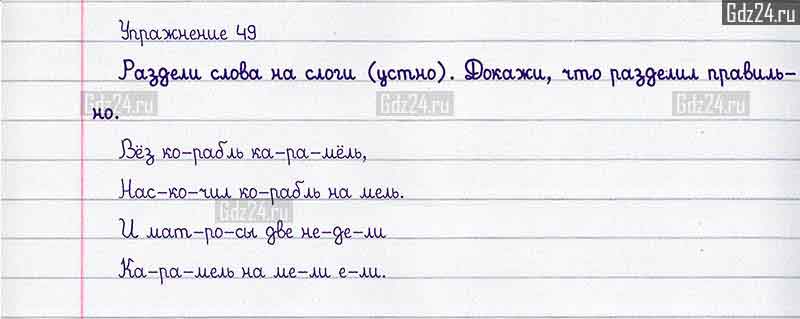 Gdz24.ru
Упражнение 49
Раздели слова на слоги (устно). Докажи, что разделил правиль-
Gdz24.ru Gdz24.ru Gdz24.ru
но.
Вёз ко-рабль ка-ра-мёль,
Нас-ко-чил ко-рабль на мель.
Gdz24.ru
И мат-ро-сы две не-де-ли
Ка-ра-мель на ме-ли е-ли.